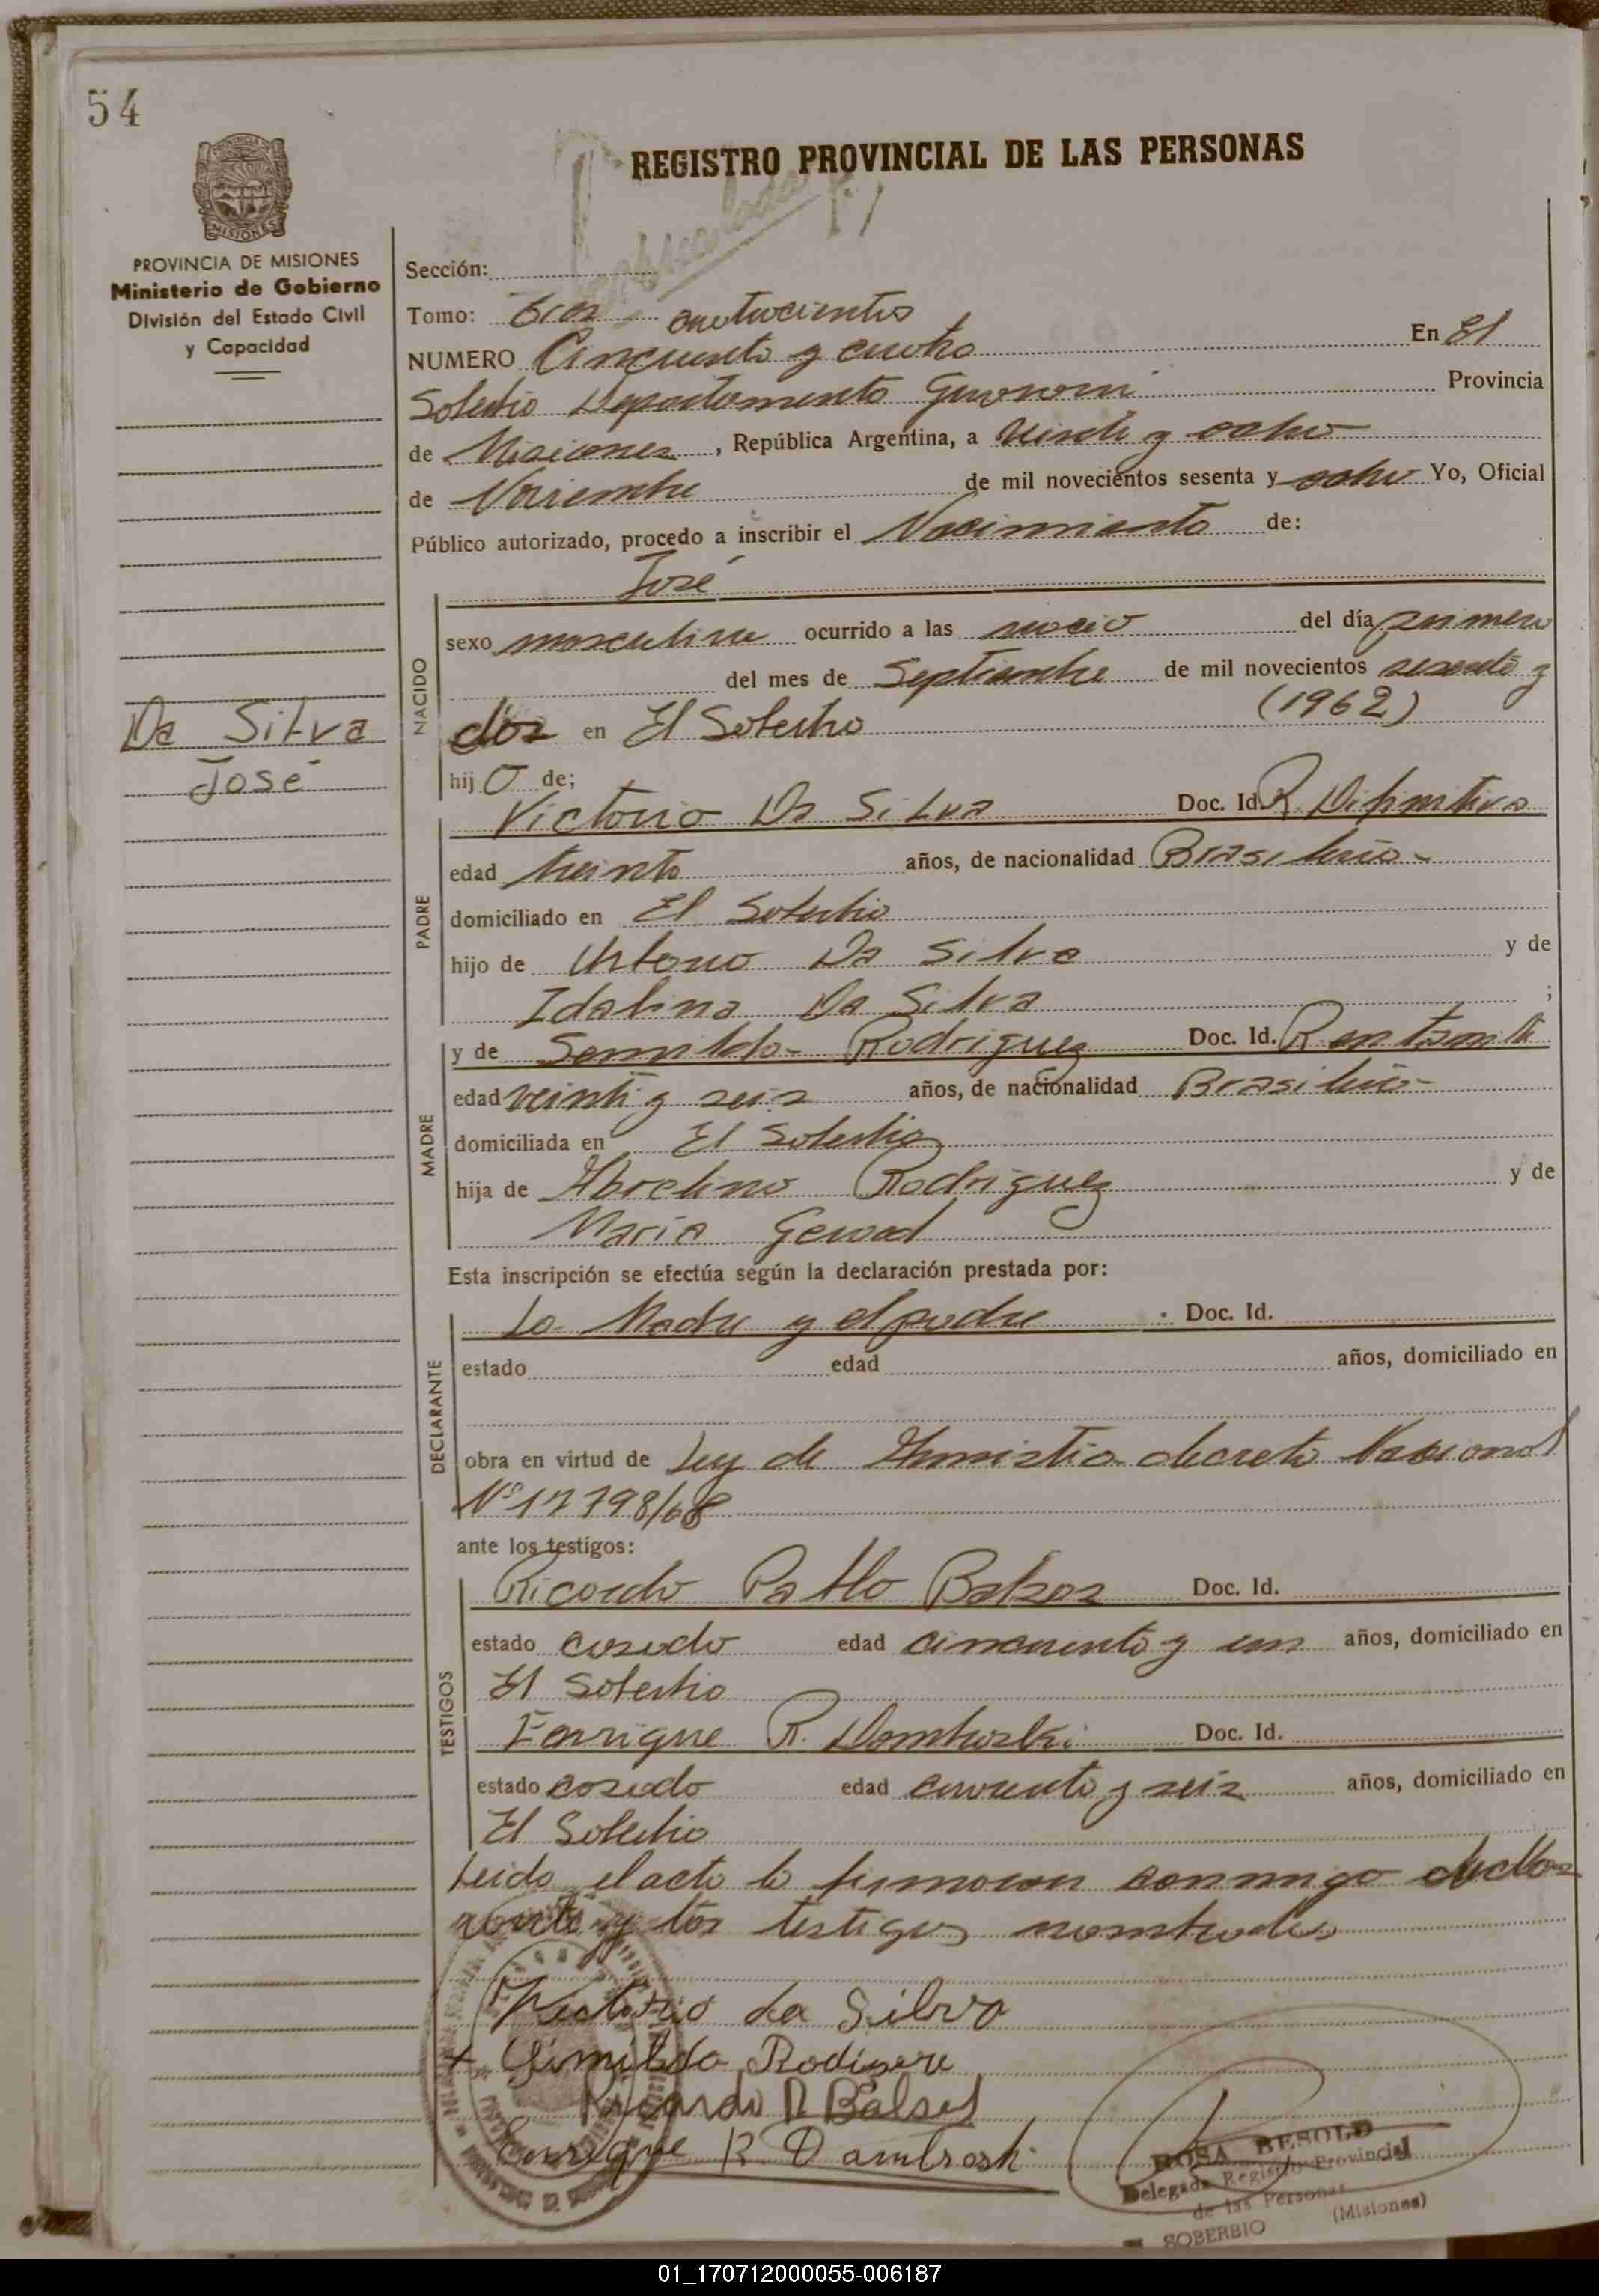 54
REGISTRO PROVINCIAL DE LAS PERSONAS
MISIONES
PROVINCIA DE MISIONES
Ministerio de Gobierno
División del Estado Civil
y Capacidad
Da Silva
José
Sección:
Tomo: cuatrocientos
NUMERO Cincuenta y cuatro En El
Soberbio Departamento Guarani Provincia
de Misiones, República Argentina, a veinte y ocho
de Noviembre de mil novecientos sesenta y ocho Yo, Oficial
Público autorizado, procedo a inscribir el Nacimiento de:
José
NACIDO
sexo masculino ocurrido a las del día primero
del mes de Septiembre de mil novecientos sesenta y
dos en El Soberbio (1962)
hijo de;
PADRE
Victorio Da Silva Doc. Id. R. Difinitiva
edad treinta años, de nacionalidad Brasileño
domiciliado en El Soberbio
hijo de Da Silva y de
Idalina Da Silva ;
MADRE
y de Rodriguez Doc. Id. R. en tramite
edad veinte y seis años, de nacionalidad Brasileña
domiciliada en El Soberbio
hija de Rodriguez y de
Maria
Esta inscripción se efectúa según la declaración prestada por:
DECLARANTE
La Madre y el padre Doc. Id.
estado edad años, domiciliado en
obra en virtud de Ley de Amnistia decreto Nacional
Nº 17798/68
ante los testigos:
TESTIGOS
Ricardo Pablo Doc. Id.
estado casado edad cincuenta y un años, domiciliado en
El Soberbio
Enrique R. Dombroski Doc. Id.
estado casado edad cuarenta y seis años, domiciliado en
El Soberbio
Leida el acta la firmaron conmigo decla
rante y los testigos nombrados
Victorio da Silva
+ Rodigere
Ricardo P Balses
Enrique R Dambroski
ROSA BESOLD
Delegada Registro Provincial
de las Personas
SOBERBIO (Misiones)
01_170712000055-006187